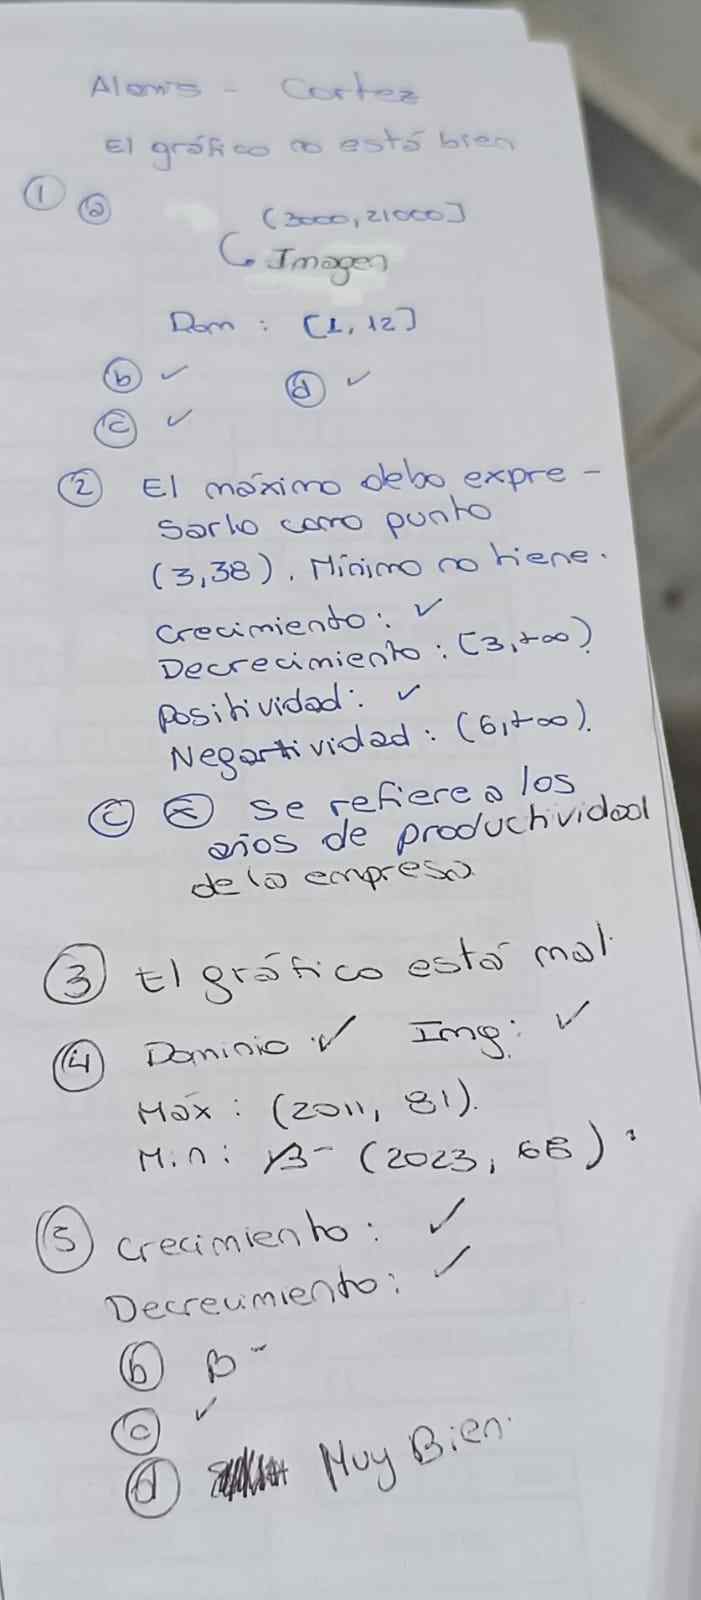 Alanis - Cortez
El gráfico no está bien
① ⓐ (3000, 21000]
Imagen
Dom : [1, 12]
ⓑ ✓ ⓓ ✓
ⓒ ✓
② El máximo debo expre-
sarlo como punto
(3,38). Mínimo no tiene.
Crecimiento: ✓
Decrecimiento: (3,+∞)
Positividad: ✓
Negartividad: (6,+∞).
ⓒ se refiere a los
años de productividad
de la empresa
③ El gráfico está mal.
④ Dominio: ✓ Img: ✓
Máx: (2011, 81).
Min: B- (2023, 68)
⑤ Crecimiento: ✓
Decrecimiento: ✓
ⓑ B-
ⓒ ✓
ⓓ Muy Bien.